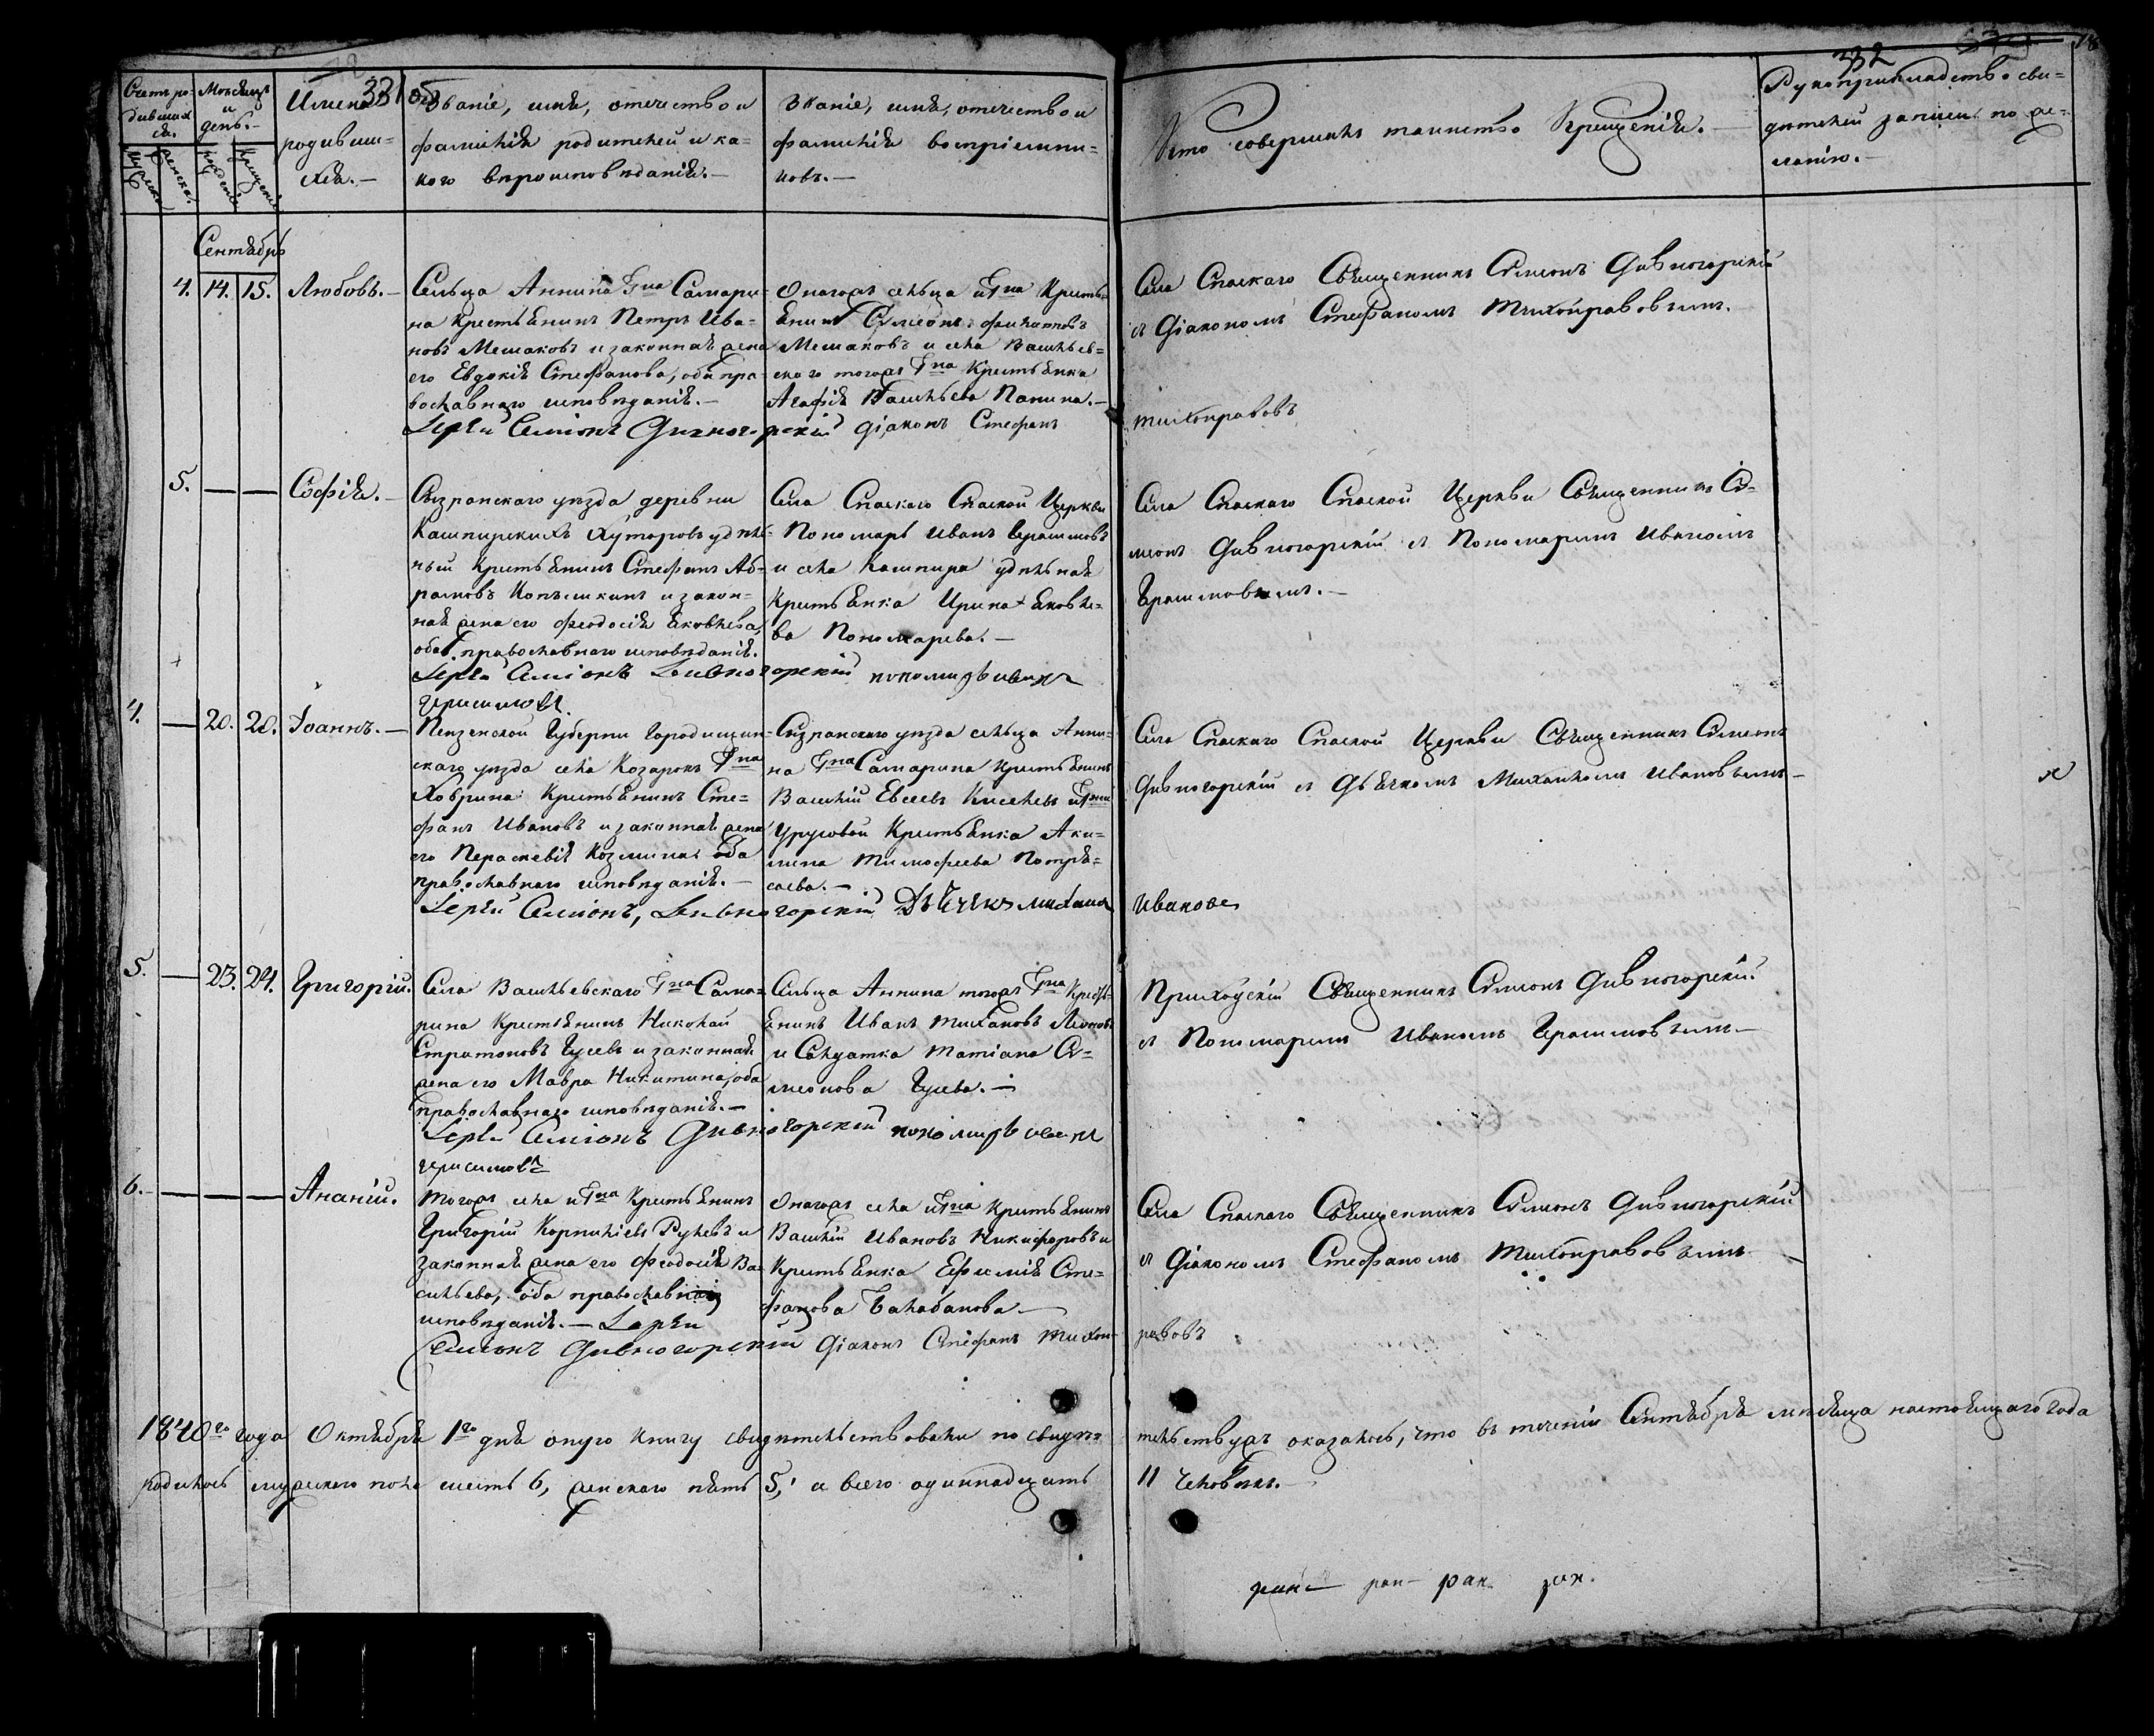 331 об
332
Счетъ ро-
дивших
ся.
Мѣсяцъ
и
день.-
Имена
родивши-
хся.-
Званіе, имя, отечество и
фамилія родителей и ка-
кого вѣроисповѣданія.-
Званіе, имя, отечество и
фамилія воспріемни-
ковъ.-
Кто совершалъ таинство Крещенія.-
Рукоприкладство сви-
дѣтелей записи по же-
ланію.-
мужеска
женска.
рожденія
крещенія
Сентябрь
4. 14. 15. Любовь.-
Сельца Аннина Гна Самари-
на крестьянинъ Петръ Ива-
новъ Мешаковъ и законная жена
его Евдокія Стефанова, оба пра-
вославнаго исповѣданія.-
Іерей Симіонъ Дивногорскій діаконъ Стефанъ
Тихонравовъ
Онагожъ сельца и Гна Кресть-
янинъ Сѵмеонъ Филатовъ
Мешаковъ и села Васильев-
скаго тогожъ Гна Крестьянка
Агафія Васильева Панина.-
Села Спаскаго Священникъ Сѵмеонъ Дивногорскій
съ Діакономъ Стефаномъ Тихонравовымъ.
5. — — Софія.-
Сызранскаго уѣзда деревни
Кашпирскихъ Хуторовъ удѣль-
ный Крестьянинъ Стефанъ Аб-
рамовъ Копышкинъ и закон-
ная жена его Феодосія Яковлева,
оба православнаго исповѣданія.
Іерей Симіонъ Дивногорскій пономарь Иванъ
Герасимовъ
Села Спаскаго Спаской Церкви
Пономарь Иванъ Герасимовъ
и села Кашпира удѣльная
Крестьянка Ирина Яковле-
ва Пономарева.-
Села Спаскаго Спаской Церкви Священникъ Сѵ-
меонъ Дивногорскій съ Пономаремъ Иваномъ
Герасимовымъ.-
4. — 20. 20. Іоаннъ.-
Пензенской Губерніи Городищен-
скаго уѣзда села Козарокъ Гна
Ховрина Крестьянинъ Сте-
фанъ Ивановъ и законная жена
его Параскевія Козмина оба
православнаго исповѣданія.-
Іерей Симіонъ, Дивногорскій Дьячекъ Михаилъ
Ивановъ
Сызранскаго уѣзда сельца Анни-
на Гна Самарина крестьянинъ
Василій Евсеевъ Киселевъ и Гжи
Урусовой Крестьянка Аки-
лина Тимофеева Потря-
саева.-
Села Спаскаго Спаской Церкви Священникъ Сѵмеонъ
Дивногорскій съ Дьячкомъ Михаиломъ Ивановымъ-
5. — 23. 24. Григорій.
Села Васильевскаго Гна Сама-
рина Крестьянинъ Николай
Стратоновъ Гусевъ и законная
жена его Мавра Никитина, оба
православнаго исповѣданія.-
Іерей Симіонъ Дивногорскій пономарь Иванъ
Герасимовъ
Сельца Аннина тогожъ Гна Кресть-
янинъ Иванъ Тихановъ Леонов
и Салдатка Татіана Сѵ-
меонова Гусева.-
Приходскій Священникъ Сѵмеонъ Дивногорскій
съ Пономаремъ Иваномъ Герасимовымъ-
6. — — — Ананій.
Тогожъ села и Гна Крестьянинъ
Григорій Корниліевъ Рулевъ и
законная жена его Феодосія Ва-
сильева, оба православнаго
исповѣданія.- Іерей
Симіонъ Дивногорскій Діаконъ Стефанъ Тихон-
равовъ
Онагожъ села и Гна Крестьянинъ
Василій Ивановъ Никифоровъ и
Крестьянка Ефимія Сте-
фанова Балабанова-
Села Спаскаго Священникъ Сѵмеонъ Дивногорскій
съ Діакономъ Стефаномъ Тихонравовымъ-
1840го года Октября 1го дня оную книгу свидѣтельствовали по свидѣ-тельству жъ оказалось, что въ теченіи Сентября мѣсяца настоящаго года
родилось мужескаго пола шесть 6, женскаго пять 5, а всего одиннадцать 11 человѣкъ.-